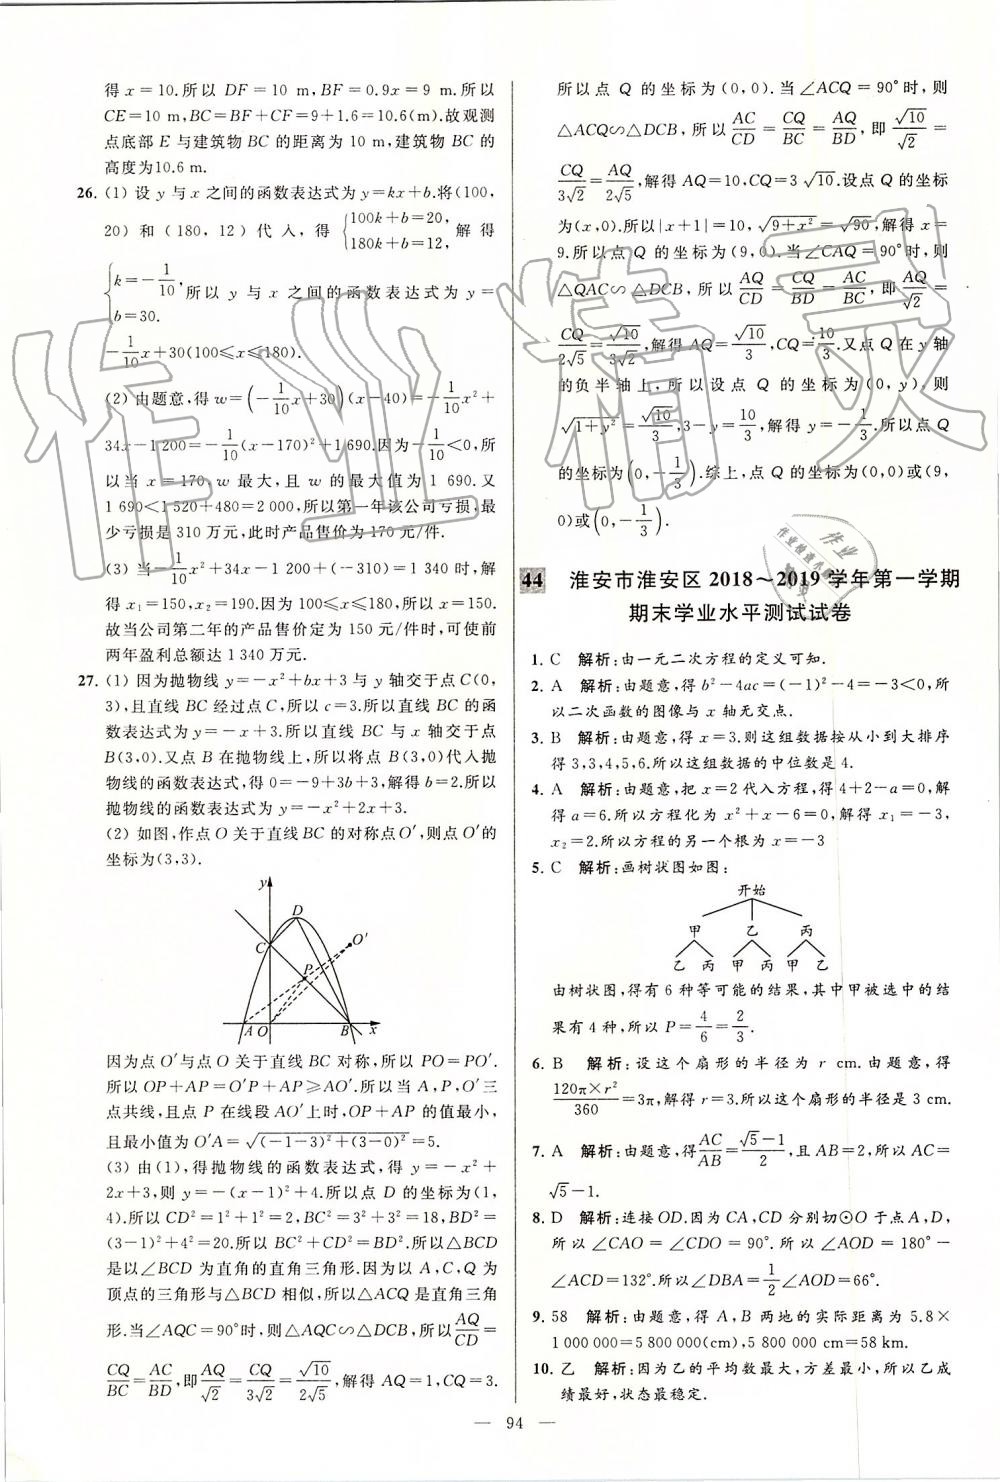 得 x=10.所以 DF=10 m,BF=0.9x=9 m.所以
CE=10 m,BC=BF+CF=9+1.6=10.6(m).故观测
点底部 E 与建筑物 BC 的距离为 10 m,建筑物 BC 的
高度为10.6 m.
26. (1) 设 y 与 x 之间的函数表达式为 y=kx+b.将(100,
20) 和 (180, 12) 代入, 得 {100k+b=20, 180k+b=12, 解得
{k=-1/10, b=30. 所以 y 与 x 之间的函数表达式为 y=
-1/10x+30(100≤x≤180).
(2) 由题意,得 w=(-1/10x+30)(x-40)=-1/10x²+
34x-1 200=-1/10(x-170)²+1 690.因为-1/10<0,所
以当 x=170, w 最大,且 w 的最大值为 1 690.又
1 690<1 520+480=2 000,所以第一年该公司亏损,最
少亏损是 310 万元,此时产品售价为 170 元/件.
(3) 当-1/10x²+34x-1 200+(-310)=1 340 时,解
得 x₁=150,x₂=190.因为 100≤x≤180,所以 x=150.
故当公司第二年的产品售价定为 150 元/件时,可使前
两年盈利总额达 1 340 万元.
27. (1) 因为抛物线 y=-x²+bx+3 与 y 轴交于点 C(0,
3),且直线 BC 经过点 C,所以 c=3.所以直线 BC 的函
数表达式为 y=-x+3.所以直线 BC 与 x 轴交于点
B(3,0).又点 B 在抛物线上,所以将点 B(3,0)代入抛
物线的函数表达式,得 0=-9+3b+3,解得 b=2.所以
抛物线的函数表达式为 y=-x²+2x+3.
(2) 如图,作点 O 关于直线 BC 的对称点 O′,则点 O′的
坐标为(3,3).
y
D
C
O′
P
A O B x
因为点 O′与点 O 关于直线 BC 对称,所以 PO=PO′.
所以 OP+AP=O′P+AP≥AO′.所以当 A,P,O′三
点共线,且点 P 在线段 AO′上时,OP+AP 的值最小,
且最小值为 O′A=√((-1-3)²+(3-0)²)=5.
(3) 由(1),得抛物线的函数表达式为 y=-x²+
2x+3,则 y=-(x-1)²+4.所以点 D 的坐标为(1,
4).所以 CD²=1²+1²=2,BC²=3²+3²=18,BD²=
(3-1)²+4²=20.所以 BC²+CD²=BD².所以△BCD
是以∠BCD 为直角的直角三角形.因为以 A,C,Q 为
顶点的三角形与△BCD 相似,所以△ACQ 是直角三角
形.当∠AQC=90°时,则△AQC∽△DCB,所以AQ/CD=
CQ/BC=AC/BD,即AQ/√2=CQ/3√2=√10/2√5,解得 AQ=1,CQ=3.
所以点 Q 的坐标为(0,0).当∠ACQ=90°时,则
△ACQ∽△DCB,所以AC/CD=CQ/BC=AQ/BD,即√10/√2=
CQ/3√2=AQ/2√5,解得 AQ=10,CQ=3√10.设点 Q 的坐标
为(x,0).所以|x+1|=10,√(9+x²)=√90,解得 x=
9.所以点 Q 的坐标为(9,0).当∠CAQ=90°时,则
△QAC∽△DCB,所以AQ/CD=CQ/BD=AC/BC,即AQ/√2=
CQ/2√5=√10/3√2,解得 AQ=√10/3,CQ=10/3.又点 Q 在 y 轴
的负半轴上,所以设点 Q 的坐标为(0,y),则
√(1+y²)=√10/3,3-y=10/3,解得 y=-1/3.所以点 Q
的坐标为(0,-1/3).综上,点 Q 的坐标为(0,0)或(9,
0)或(0,-1/3).
44 淮安市淮安区 2018~2019 学年第一学期
期末学业水平测试试卷
1. C 解析:由一元二次方程的定义可知.
2. A 解析:由题意,得 b²-4ac=(-1)²-4=-3<0,所
以二次函数的图像与 x 轴无交点.
3. B 解析:由题意,得 x=3.则这组数据按从小到大排序
得 3,3,4,5,6.所以这组数据的中位数是 4.
4. A 解析:由题意,把 x=2 代入方程,得 4+2-a=0,解
得 a=6.所以方程化为 x²+x-6=0,解得 x₁=-3,
x₂=2.所以方程的另一个根为 x=-3
5. C 解析:画树状图如图:
开始
甲 乙 丙
乙 丙 甲 丙 甲 乙
由树状图,得有 6 种等可能的结果,其中甲被选中的结
果有 4 种,所以 P=4/6=2/3.
6. B 解析:设这个扇形的半径为 r cm.由题意,得
120π×r²/360=3π,解得 r=3.所以这个扇形的半径是 3 cm.
7. A 解析:由题意,得AC/AB=(√5-1)/2,且 AB=2,所以 AC=
√5-1.
8. D 解析:连接 OD.因为 CA,CD 分别切⊙O 于点 A,D,
所以∠CAO=∠CDO=90°.所以∠AOD=180°-
∠ACD=132°.所以∠DBA=1/2∠AOD=66°.
9. 58 解析:由题意,得 A,B 两地的实际距离为 5.8×
1 000 000=5 800 000(cm),5 800 000 cm=58 km.
10. 乙 解析:因为乙的平均数最大,方差最小,所以乙成
绩最好,状态最稳定.
— 94 —
作业精灵